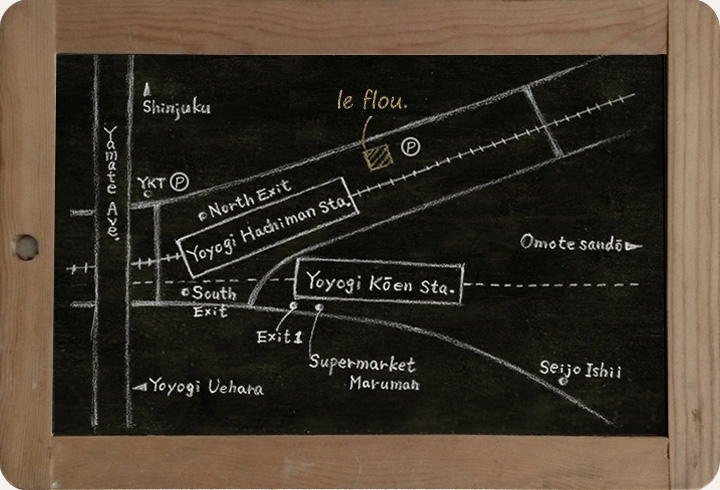 le flou.
Shinjuku
Yamate Ave.
YKT Ⓟ
Ⓟ
North Exit
Yoyogi Hachiman Sta.
Omote sandō
Yoyogi Kōen Sta.
South
Exit
Exit 1
Supermarket
Maruman
Seijo Ishii
Yoyogi Uehara